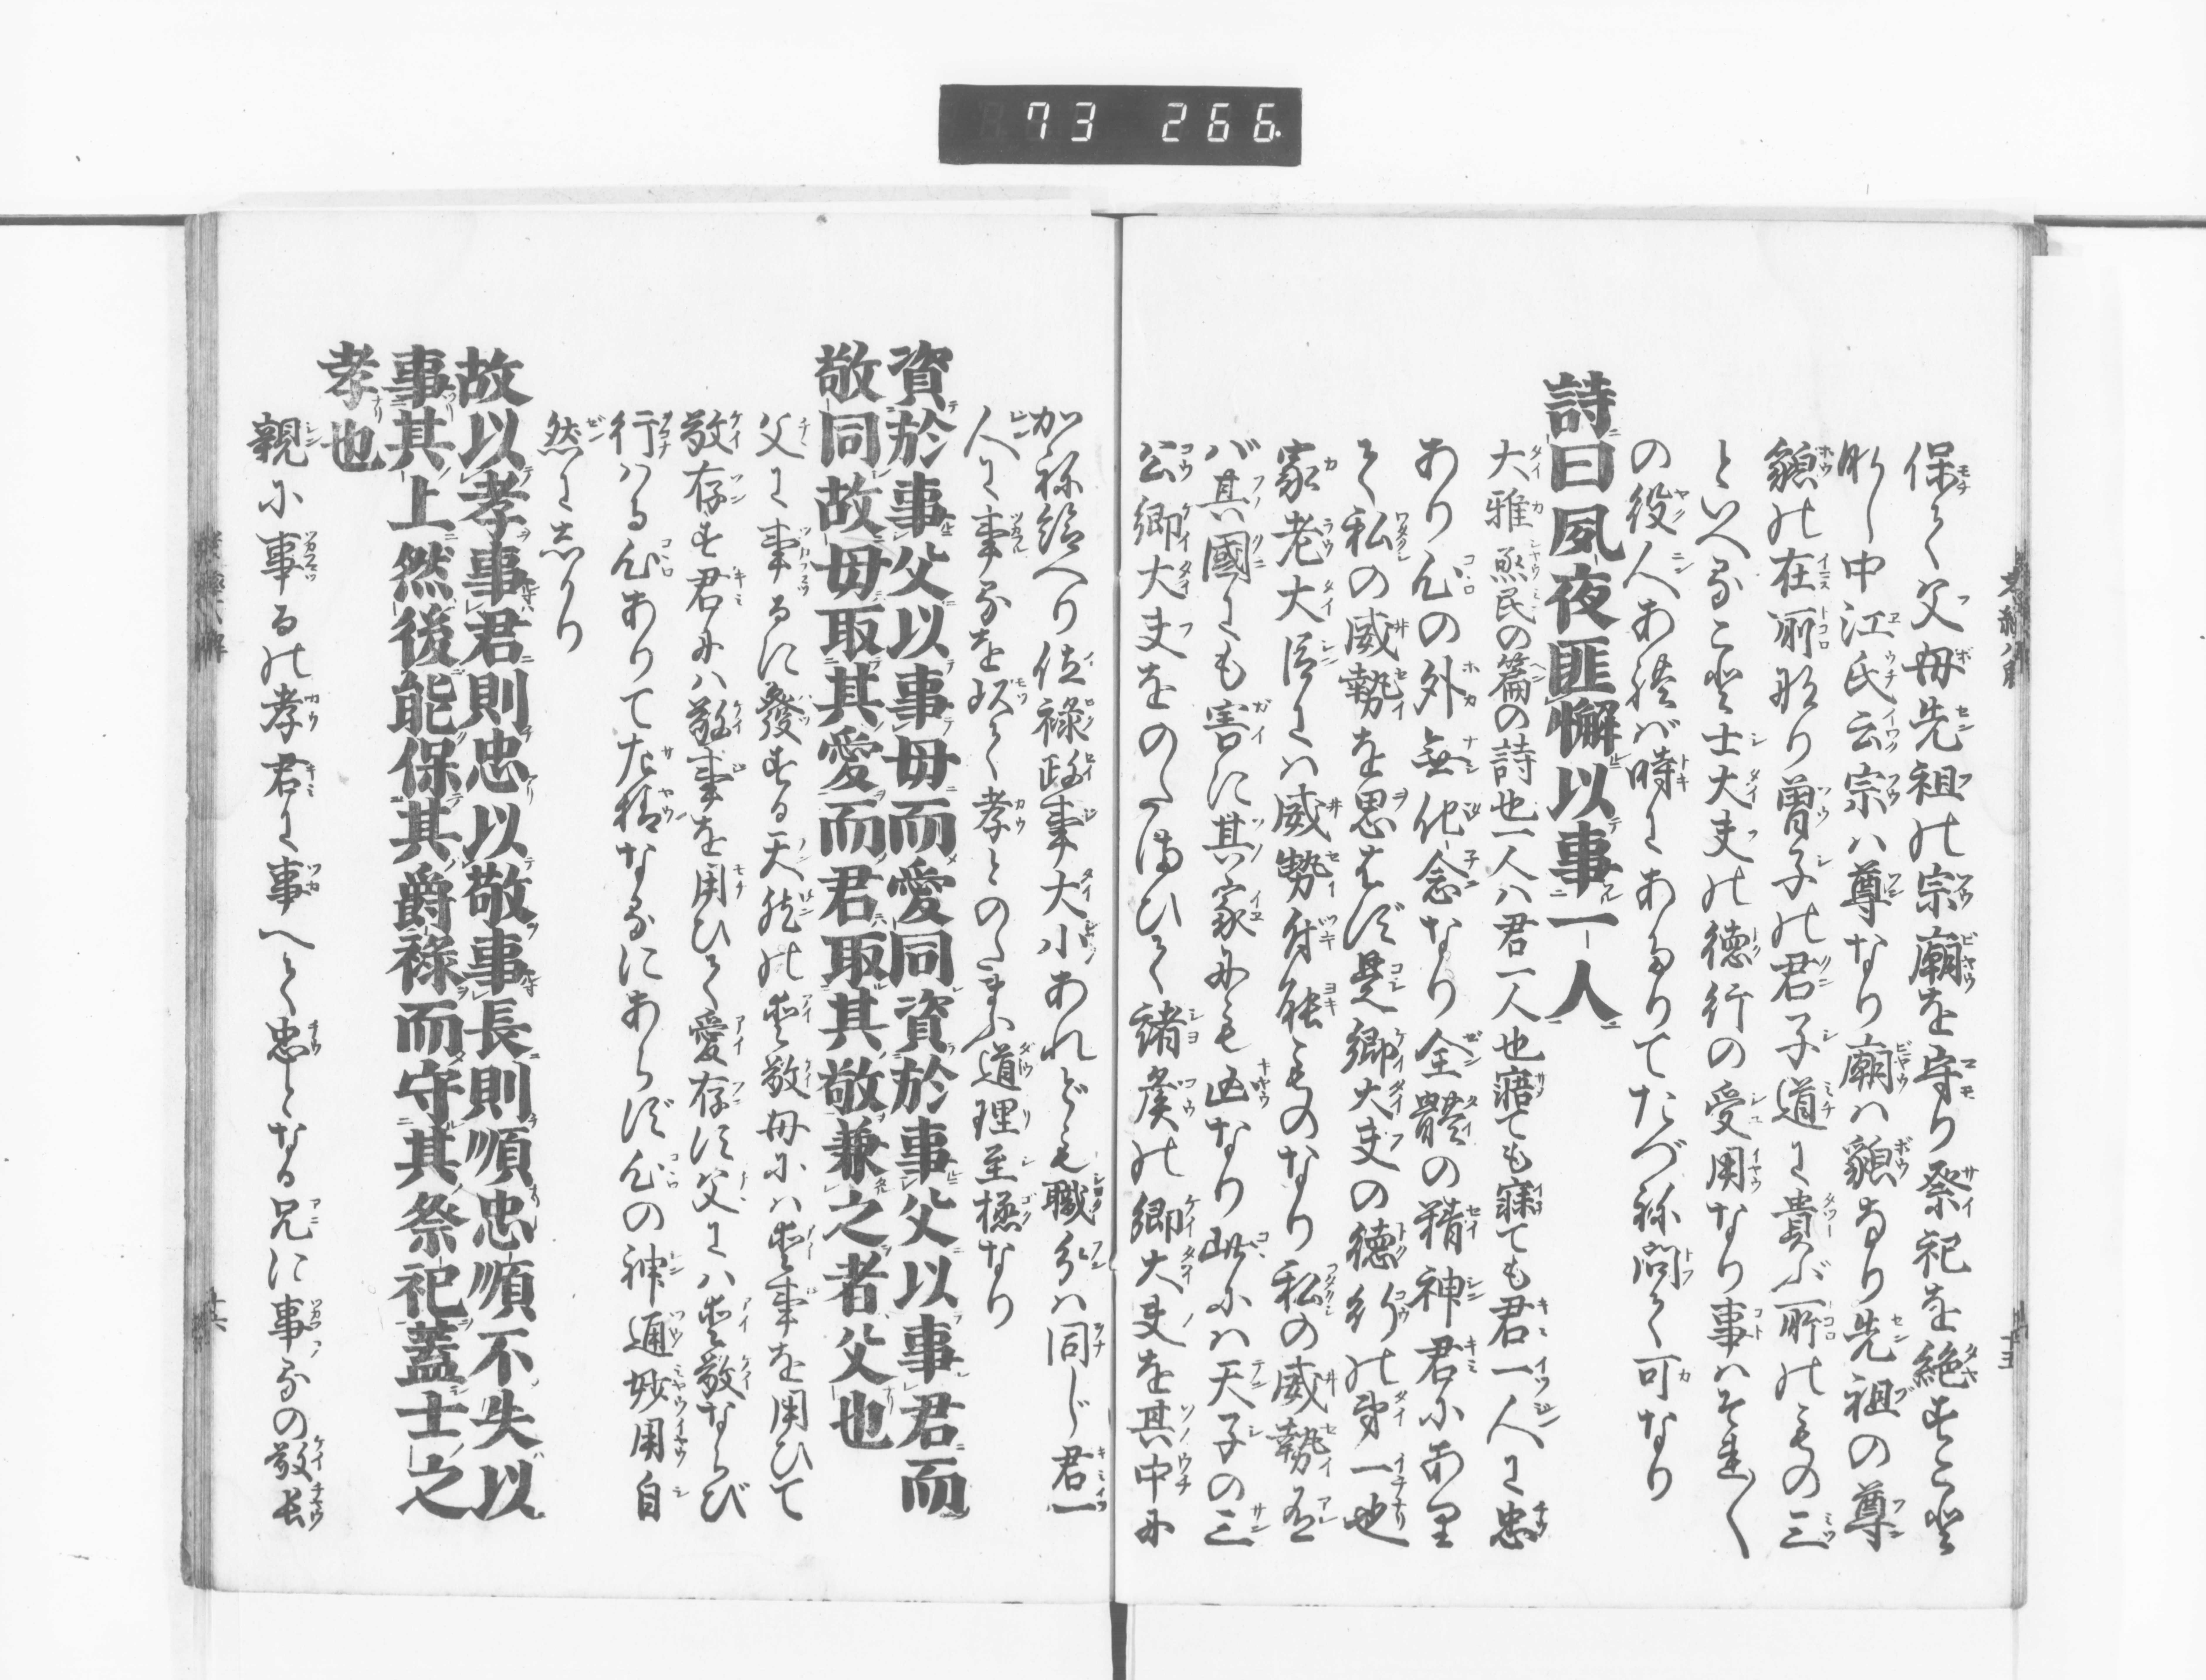 73 266.
保て父母先祖の宗廟を守り祭祀を絶さゞること
なし中江氏云宗ハ尊なり廟ハ貌なり先祖の尊
貌の在所なり曽子の君子道に貴ぶ所のもの三
といへるこゝろ士大夫の徳行の受用なり事ハそれ〳〵
の役人あれば時にあたりてたづね問て可なり
詩曰夙夜匪懈以事一人
大雅烝民の篇の詩也一人ハ君一人也寤ても寐ても君一人に忠
あり心の外無他念なり全體の精神君にあり
て私の威勢を思はず是卿大夫の徳行の第一也
家老大臣にハ威勢付能ものなり私の威勢有
バ其國にも害に其家にも凶なり此にハ天子の三
公卿大夫をのたまひて諸侯の卿大夫を其中に
かね給へり位祿政事大小あれども職分ハ同じ君一
人に事るを以て孝とのたまふ道理至極なり
資於事父以事母而愛同資於事父以事君而
敬同故母取其愛而君取其敬兼之者父也
父に事るに發する天然の愛敬母にハ愛事を用ひて
敬存す君にハ敬事を用ひて愛存に父にハ愛敬ならび
行ハる心ありてた様なるにあらず心の神通妙用自
然にしかり
故以孝事君則忠以敬事長則順忠順不失以
事其上然後能保其爵祿而守其祭祀蓋士之
孝也
親に事るの孝君に事へて忠となる兄に事るの敬長